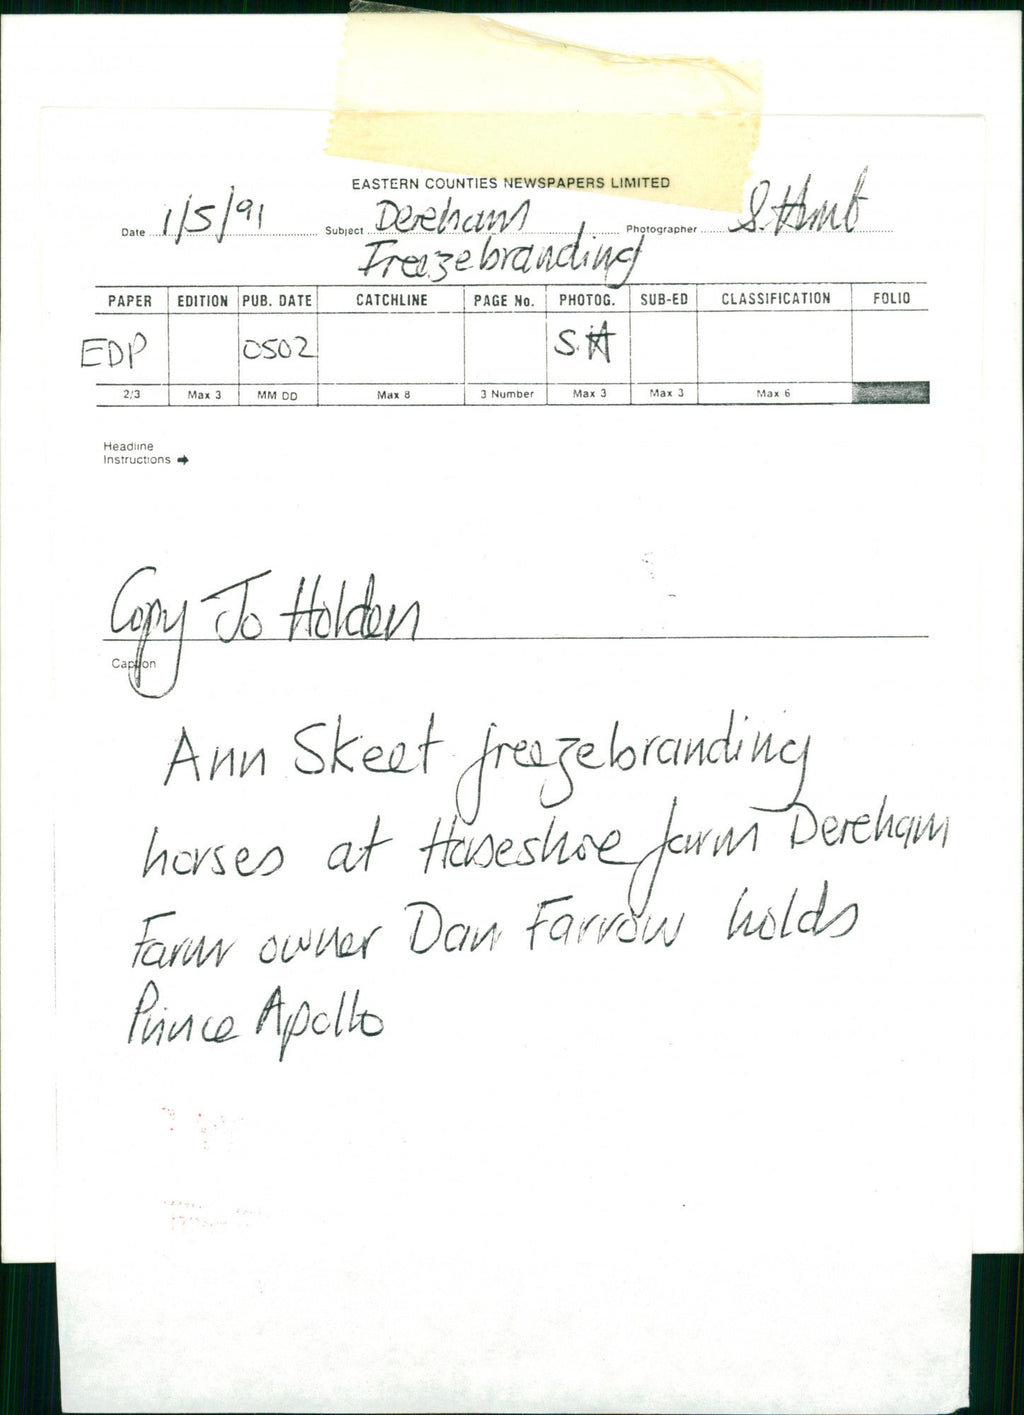 EASTERN COUNTIES NEWSPAPERS LIMITED
Date 1/5/91 Subject Dereham Photographer S. Hunt
Freezebranding
PAPER EDITION PUB. DATE CATCHLINE PAGE No. PHOTOG. SUB-ED CLASSIFICATION FOLIO
EDP 0502 S.H
2/3 Max 3 MM DD Max 8 3 Number Max 3 Max 3 Max 6
Headline
Instructions ➔
Copy Jo Holden
Caption
Ann Skeet freezebranding
horses at Horseshoe farm Dereham
Farm owner Dan Farrow holds
Prince Apollo